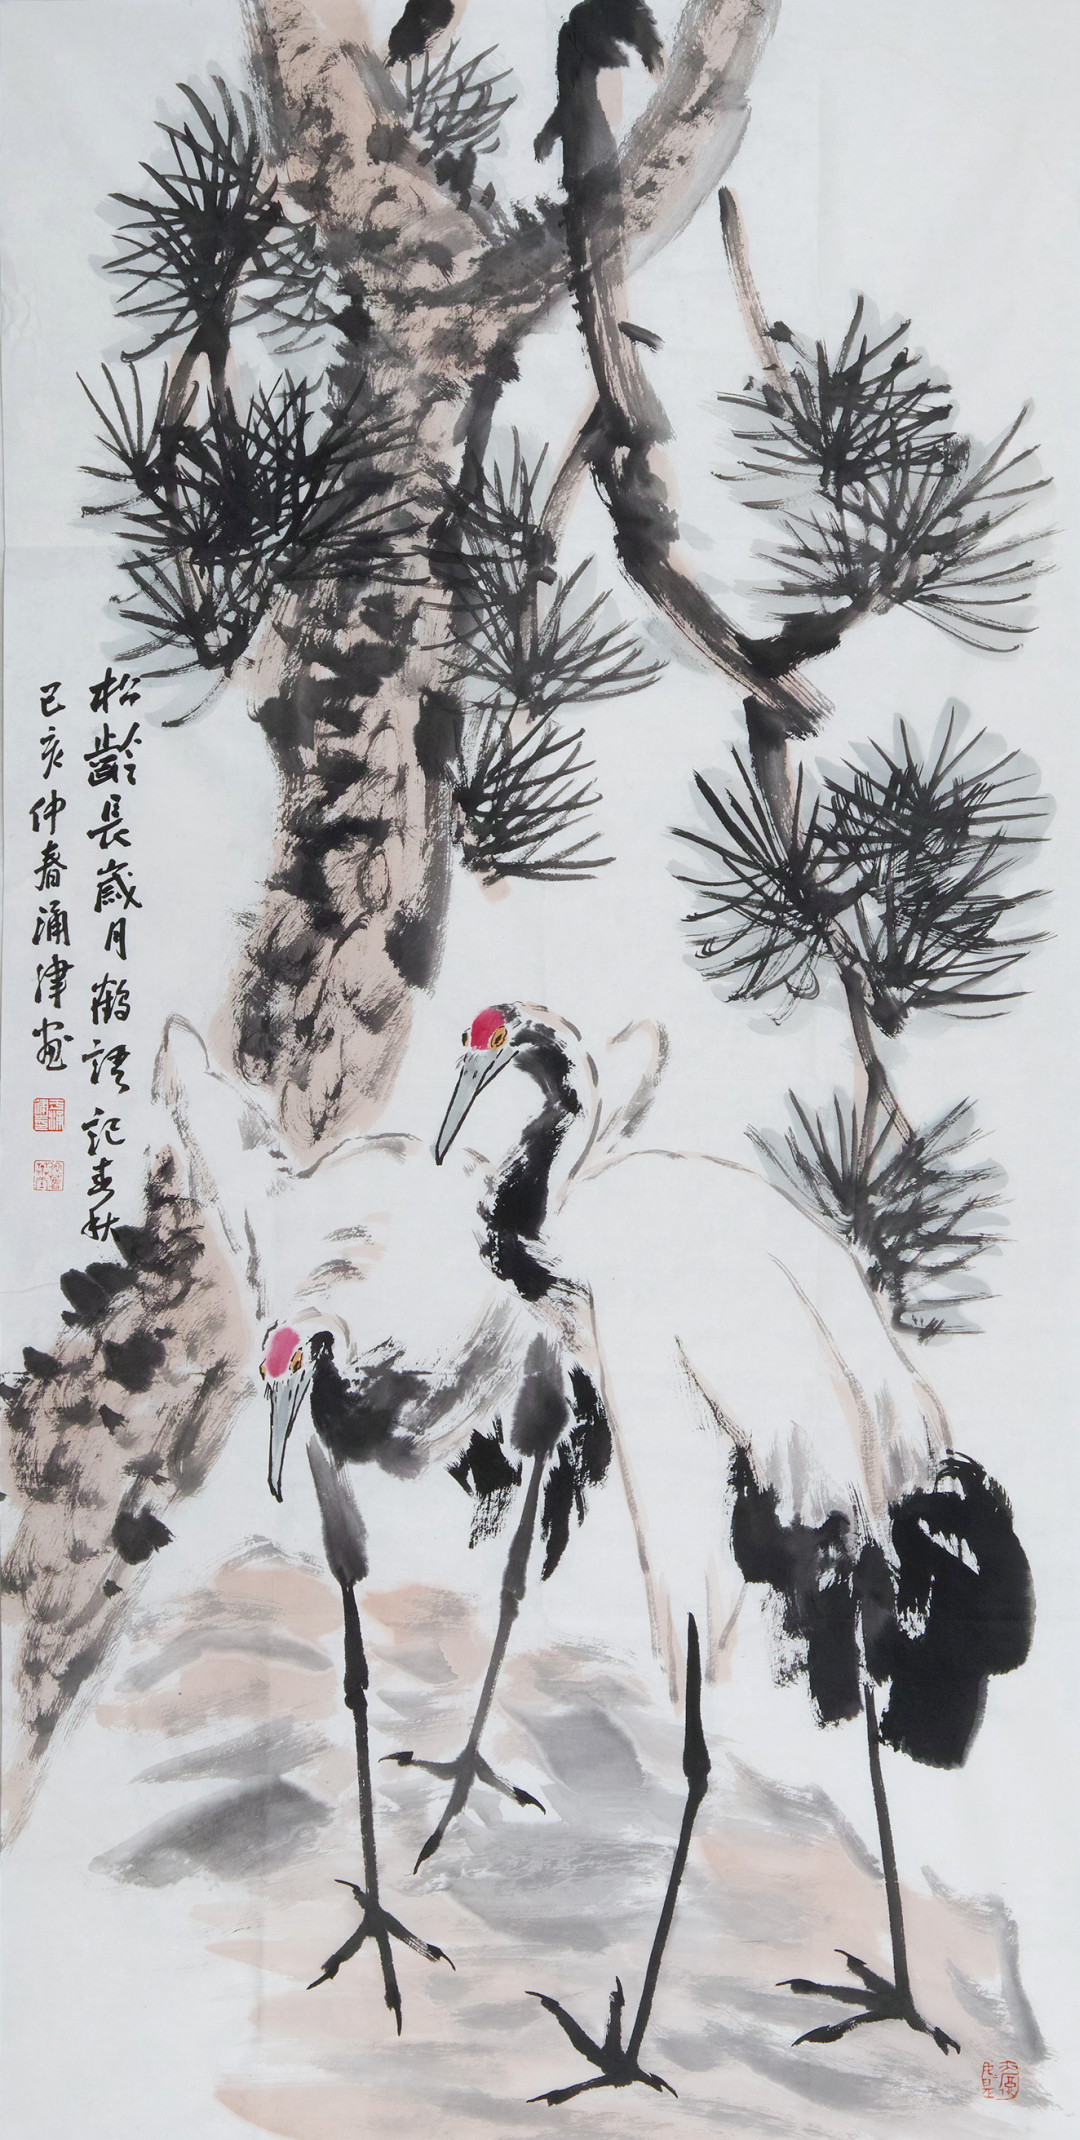 松齡長歲月鶴語記春秋
己亥仲春涌津畫